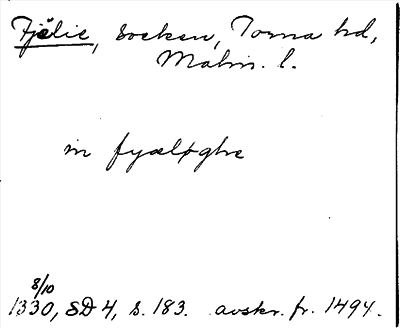 Fjelie, socken, Torna hd,
Malm. l.
in fyæløghe
8/10
1330, SD 4, s. 183. avskr. fr. 1494.